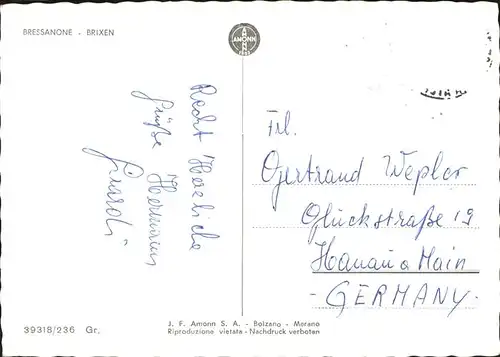 BRESSANONE - BRIXEN
AMONN
Recht Herzliche
Grüße Hermann
Frl.
Gertraud Wepler
Glückstraße 19
Hanau a Main
- GERMANY -
J. F. Amonn S. A. - Bolzano - Merano
Riproduzione vietata - Nachdruck verboten
39318/236 Gr.